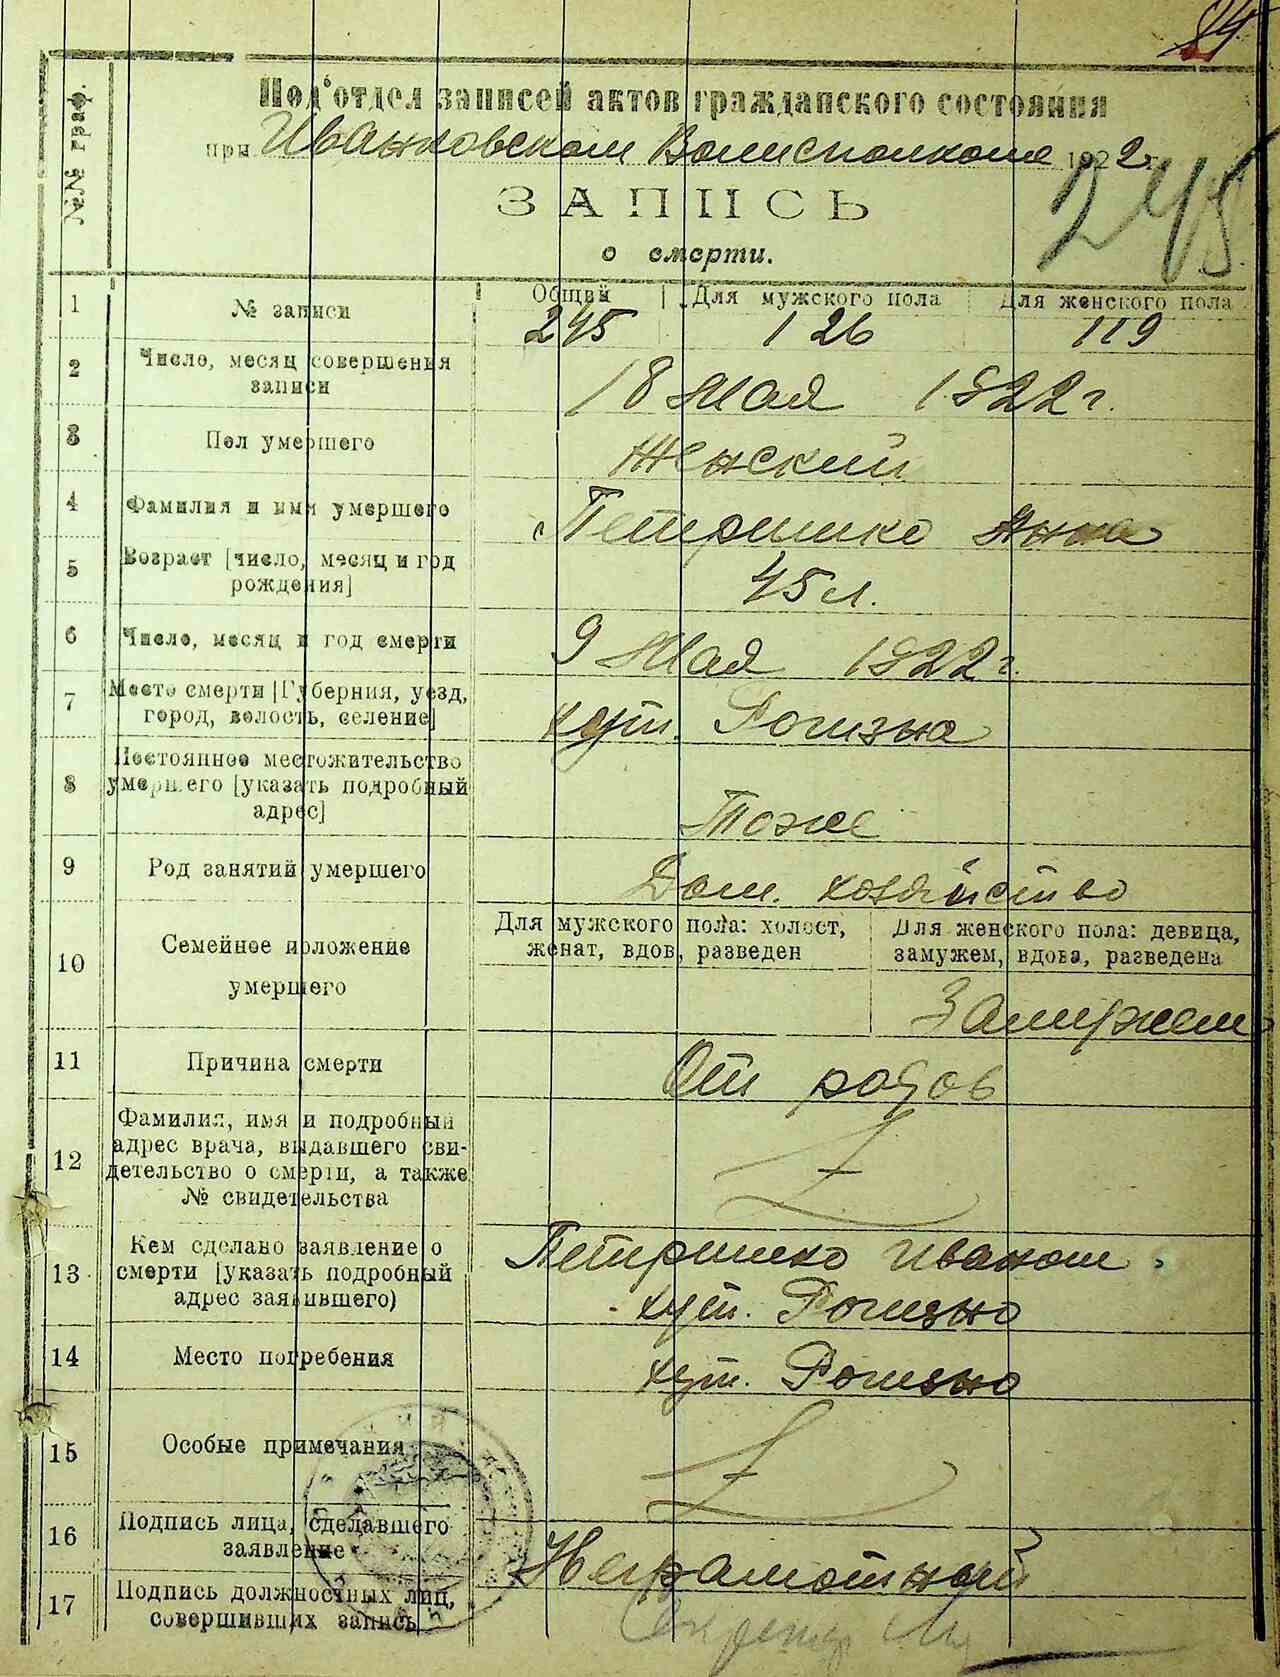 84
№№ граф.
Под'отдел записей актов гражданского состояния
при Иванковском Волисполкоме 1922 г.
245
ЗАПИСЬ
о смерти.
1 № записи Общий Для мужского пола Для женского пола
245 126 119
2 Число, месяц совершения
записи 18 Мая 1922 г.
3 Пол умершего Женский
4 Фамилия и имя умершего Петришко Анна
5 Возраст [число, месяц и год
рождения] 45 л.
6 Число, месяц и год смерти 9 Мая 1922 г.
7 Место смерти [Губерния, уезд,
город, волость, селение] хут. Рогизна
8 Постоянное местожительство
умершего [указать подробный
адрес] Тоже
9 Род занятий умершего Дом. хозяйство
10 Семейное положение
умершего
Для мужского пола: холост,
женат, вдов, разведен
Для женского пола: девица,
замужем, вдова, разведена
Замужем
11 Причина смерти От родов
12 Фамилия, имя и подробный
адрес врача, выдавшего сви-
детельство о смерти, а также
№ свидетельства
13 Кем сделано заявление о
смерти [указать подробный
адрес заявившего)
Петришко Иваном
хут. Рогизно
14 Место погребения хут. Рогизно
15 Особые примечания
16 Подпись лица, сделавшего
заявление Неграмотный
17 Подпись должностных лиц,
совершивших запись Секретар